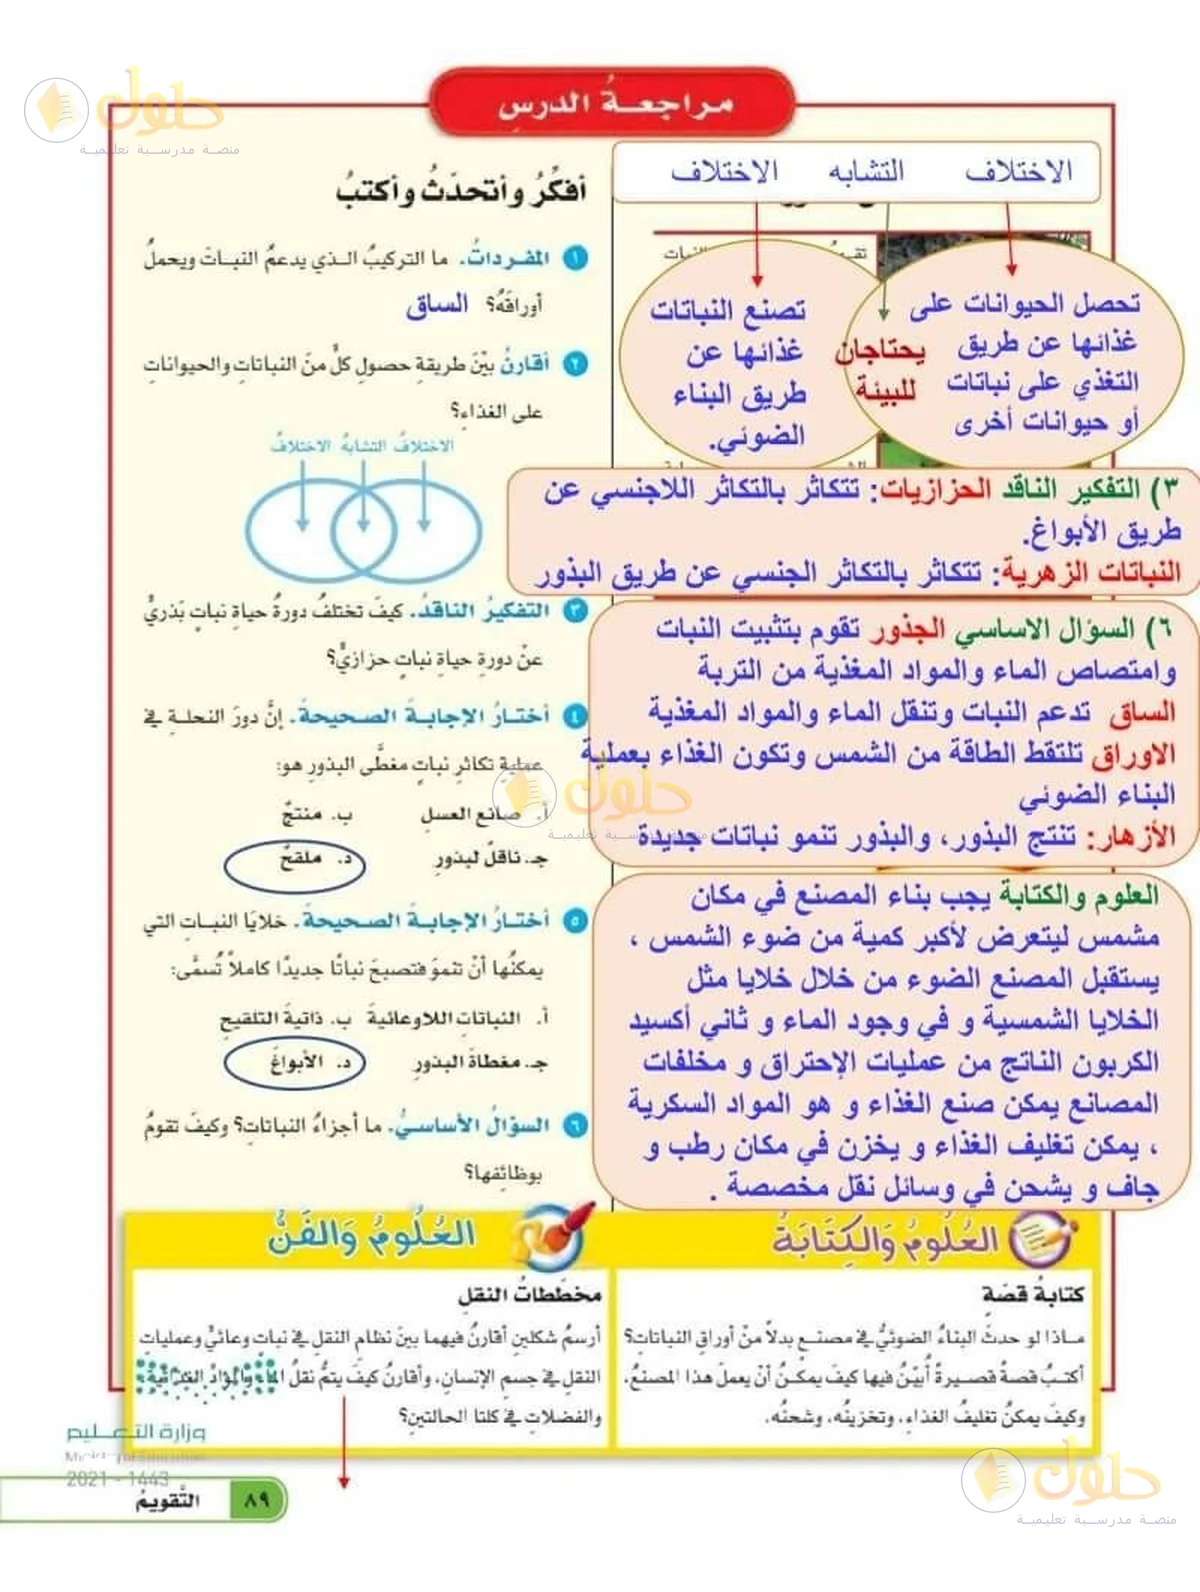 حلول
منصة مدرسية تعليمية
مراجعةُ الدرسِ
الاختلاف التشابه الاختلاف
تقومُ
النبات
تحصل الحيوانات على
غذائها عن طريق
التغذي على نباتات
أو حيوانات أخرى
يحتاجان
للبيئة
تصنع النباتات
غذائها عن
طريق البناء
الضوئي.
٣) التفكير الناقد الحزازيات: تتكاثر بالتكاثر اللاجنسي عن
طريق الأبواغ.
النباتات الزهرية: تتكاثر بالتكاثر الجنسي عن طريق البذور
٦) السؤال الاساسي الجذور تقوم بتثبيت النبات
وامتصاص الماء والمواد المغذية من التربة
الساق تدعم النبات وتنقل الماء والمواد المغذية
الاوراق تلتقط الطاقة من الشمس وتكون الغذاء بعملية
البناء الضوئي
الأزهار: تنتج البذور، والبذور تنمو نباتات جديدة
العلوم والكتابة يجب بناء المصنع في مكان
مشمس ليتعرض لأكبر كمية من ضوء الشمس ،
يستقبل المصنع الضوء من خلال خلايا مثل
الخلايا الشمسية و في وجود الماء و ثاني أكسيد
الكربون الناتج من عمليات الإحتراق و مخلفات
المصانع يمكن صنع الغذاء و هو المواد السكرية
، يمكن تغليف الغذاء و يخزن في مكان رطب و
جاف و يشحن في وسائل نقل مخصصة .
أفكِّرُ وأتحدّثُ وأكتبُ
١ المفرداتُ. ما التركيبُ الذي يدعمُ النباتَ ويحملُ
أوراقَهُ؟ الساق
٢ أقارنُ بيْنَ طريقةِ حصولِ كلٍّ منَ النباتاتِ والحيواناتِ
على الغذاءِ؟
الاختلافُ التشابهُ الاختلافُ
٣ التفكيرُ الناقدُ. كيفَ تختلفُ دورةُ حياةِ نباتٍ بَذريٍّ
عنْ دورةِ حياةِ نباتٍ حزازيٍّ؟
٤ أختارُ الإجابةَ الصحيحةَ. إنَّ دورَ النحلةِ في
عمليةِ تكاثرِ نباتٍ مغطَّى البذورِ هو:
أ. صانع العسلِ ب. منتجٌ
جـ. ناقلٌ لبذورِ د. ملقحٌ
حلول
منصة مدرسية تعليمية
٥ أختارُ الإجابةَ الصحيحةَ. خلايَا النباتِ التي
يمكنُها أنْ تنموَ فتصبحَ نباتًا جديدًا كاملاً تُسمَّى:
أ. النباتاتِ اللاوعائيةَ ب. ذاتيةَ التلقيحِ
جـ. مغطاةَ البذورِ د. الأبواغَ
٦ السؤالُ الأساسيُّ. ما أجزاءُ النباتاتِ؟ وكيفَ تقومُ
بوظائِفها؟
العُلُومُ وَالكِتَابَةُ
كتابةُ قصّةٍ
ماذا لو حدثَ البناءُ الضوئيُّ في مصنعٍ بدلاً منْ أوراقِ النباتاتِ؟
أكتبُ قصةً قصيرةً أُبيّنُ فيها كيفَ يمكنُ أنْ يعملَ هذا المصنعُ،
وكيفَ يمكنُ تغليفُ الغذاءِ، وتخزينُه، وشحنُه.
العُلُومُ وَالفَنُّ
مخطّطاتُ النقلِ
أرسمُ شكلينِ أقارنُ فيهما بينَ نظامِ النقلِ في نباتٍ وعائيٍّ وعملياتِ
النقلِ في جسمِ الإنسانِ، وأقارنُ كيفَ يتمُّ نقلُ الماءِ والموادِّ الغذائيةِ،
والفضلاتِ في كلتا الحالتينِ؟
وزارة التعليم
Ministry of Education
2021 - 1443
التَّقويمُ ٨٩
حلول
منصة مدرسية تعليمية